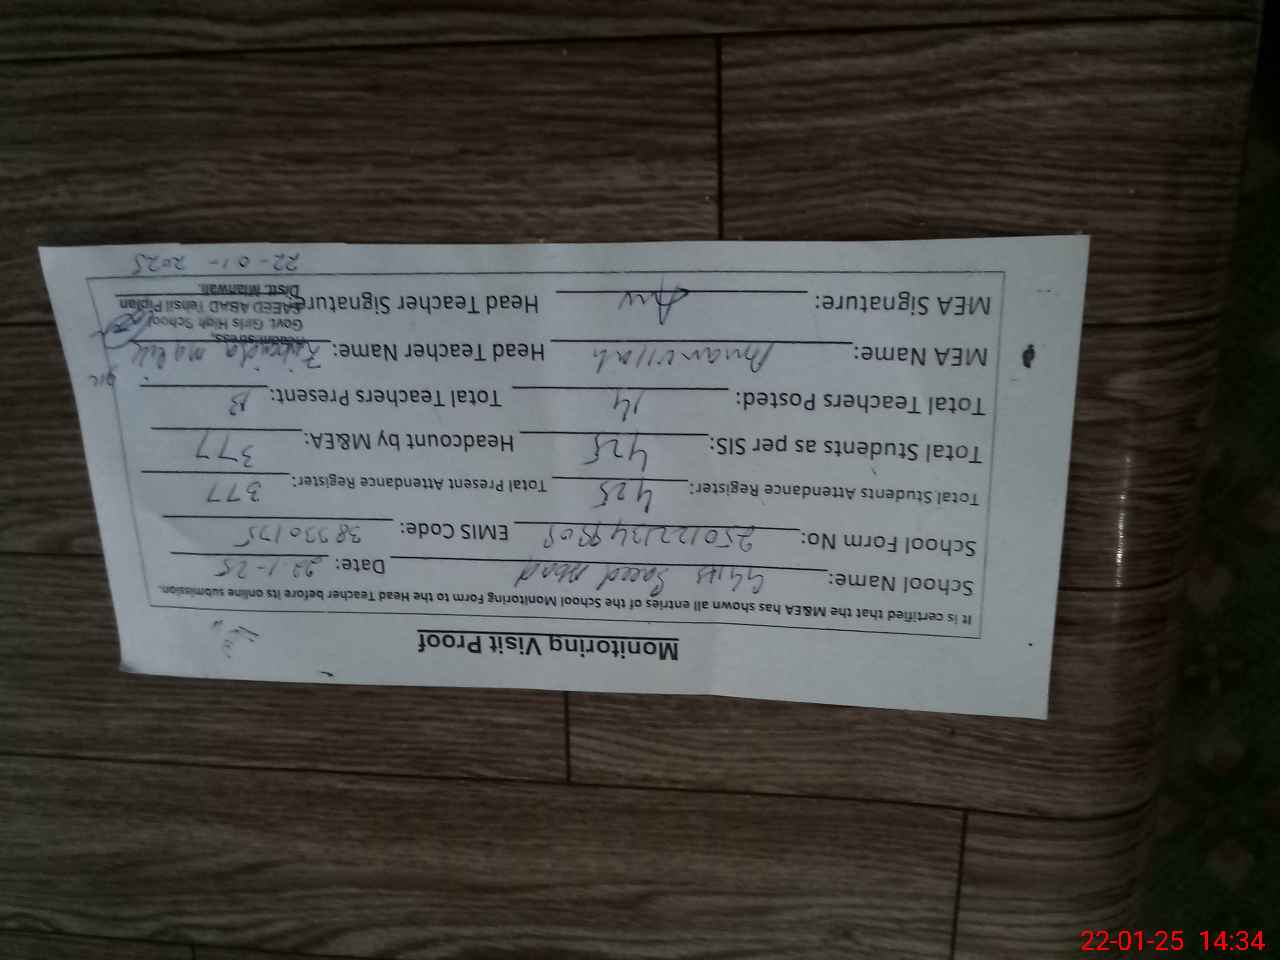 Monitoring Visit Proof
It is certified that the M&EA has shown all entries of the School Monitoring Form to the Head Teacher before its online submission.
School Name: GGHS Saeed Abad Date: 22-1-25
School Form No: EMIS Code: 38330175
Total Students Attendance Register: 425 Total Present Attendance Register: 377
Total Students as per SIS: 425 Headcount by M&EA: 377
Total Teachers Posted: 14 Total Teachers Present: 13
MEA Name: Head Teacher Name: malik
Headmistress,
Govt. Girls High School
SAEED ABAD Tehsil Piplan
Distt. Mianwali.
MEA Signature: Head Teacher Signature:
22-01-2025
22-01-25 14:34